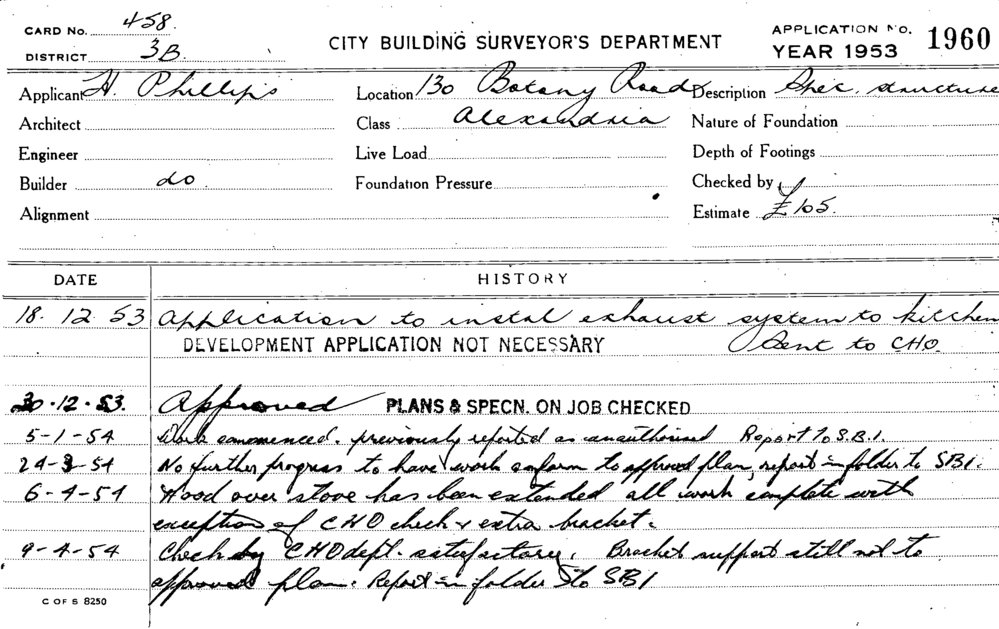 CARD No. 458.
DISTRICT 3B.
CITY BUILDING SURVEYOR'S DEPARTMENT
APPLICATION No. 1960
YEAR 1953
Applicant H. Phillips Location 130 Botany Road Description Spec. structure
Architect Class Alexandria Nature of Foundation
Engineer Live Load Depth of Footings
Builder do Foundation Pressure Checked by
Alignment Estimate £105.
DATE HISTORY
18. 12 53 Application to instal exhaust system to kitchen
DEVELOPMENT APPLICATION NOT NECESSARY Sent to CHO.
30.12.53. Approved PLANS & SPECN. ON JOB CHECKED
5-1-54 Work commenced. previously reported as unauthorised Report to S.B.I.
24-3-54 No further progress to have work conform to approved plan, report in folder to SBI.
6-4-54 Hood over stove has been extended all work complete with
exception of CHO check & extra bracket.
9-4-54 Check by CHO dept. satisfactory. Bracket support still not to
approved plan. Report in folder to SBI
C OF S 8250